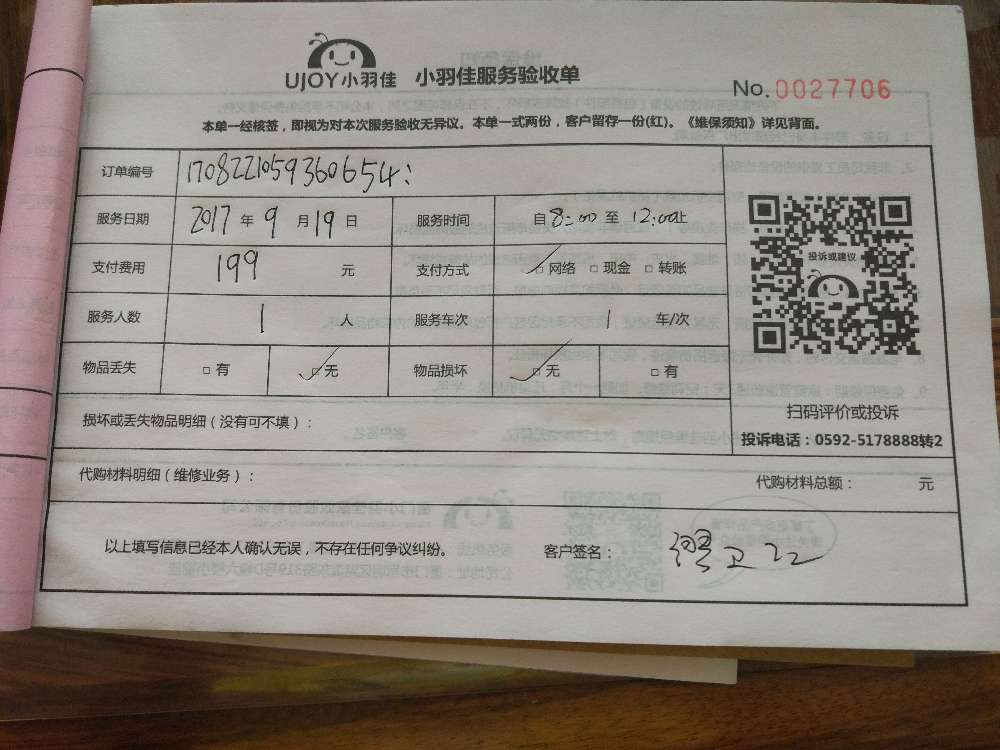 UJOY小羽佳 小羽佳服务验收单
No.0027706
本单一经核签，即视为对本次服务验收无异议。本单一式两份，客户留存一份(红)。《维保须知》详见背面。
订单编号 1708221059360654:
服务日期 2017 年 9 月 19 日 服务时间 自 8:00 至 12:00 止
支付费用 199 元 支付方式 □ 网络 □ 现金 □ 转账
服务人数 1 人 服务车次 1 车/次
物品丢失 □ 有 □ 无 物品损坏 □ 无 □ 有
投诉或建议
扫码评价或投诉
投诉电话：0592-5178888转2
损坏或丢失物品明细（没有可不填）：
代购材料明细（维修业务）： 代购材料总额： 元
以上填写信息已经本人确认无误，不存在任何争议纠纷。 客户签名：